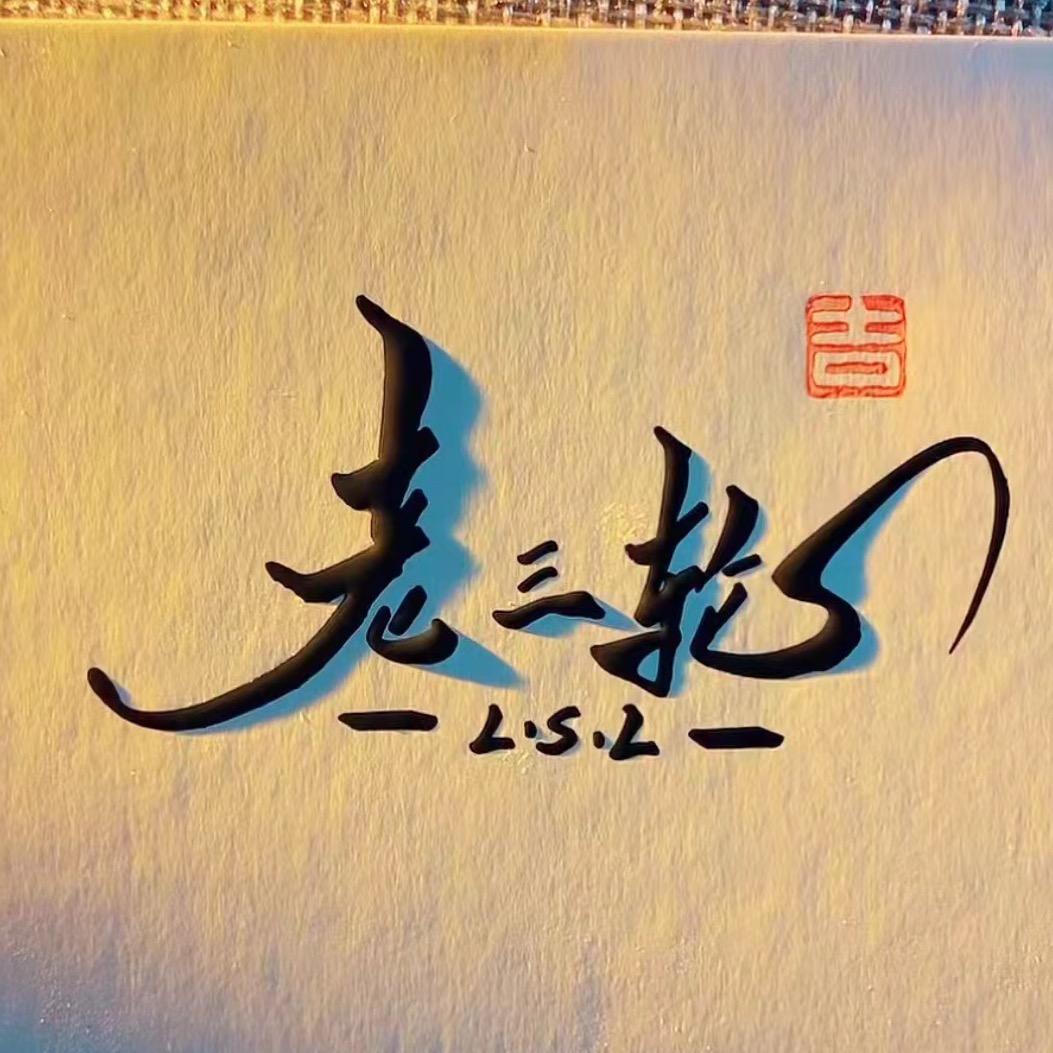 吉
老三轮
— L.S.L —